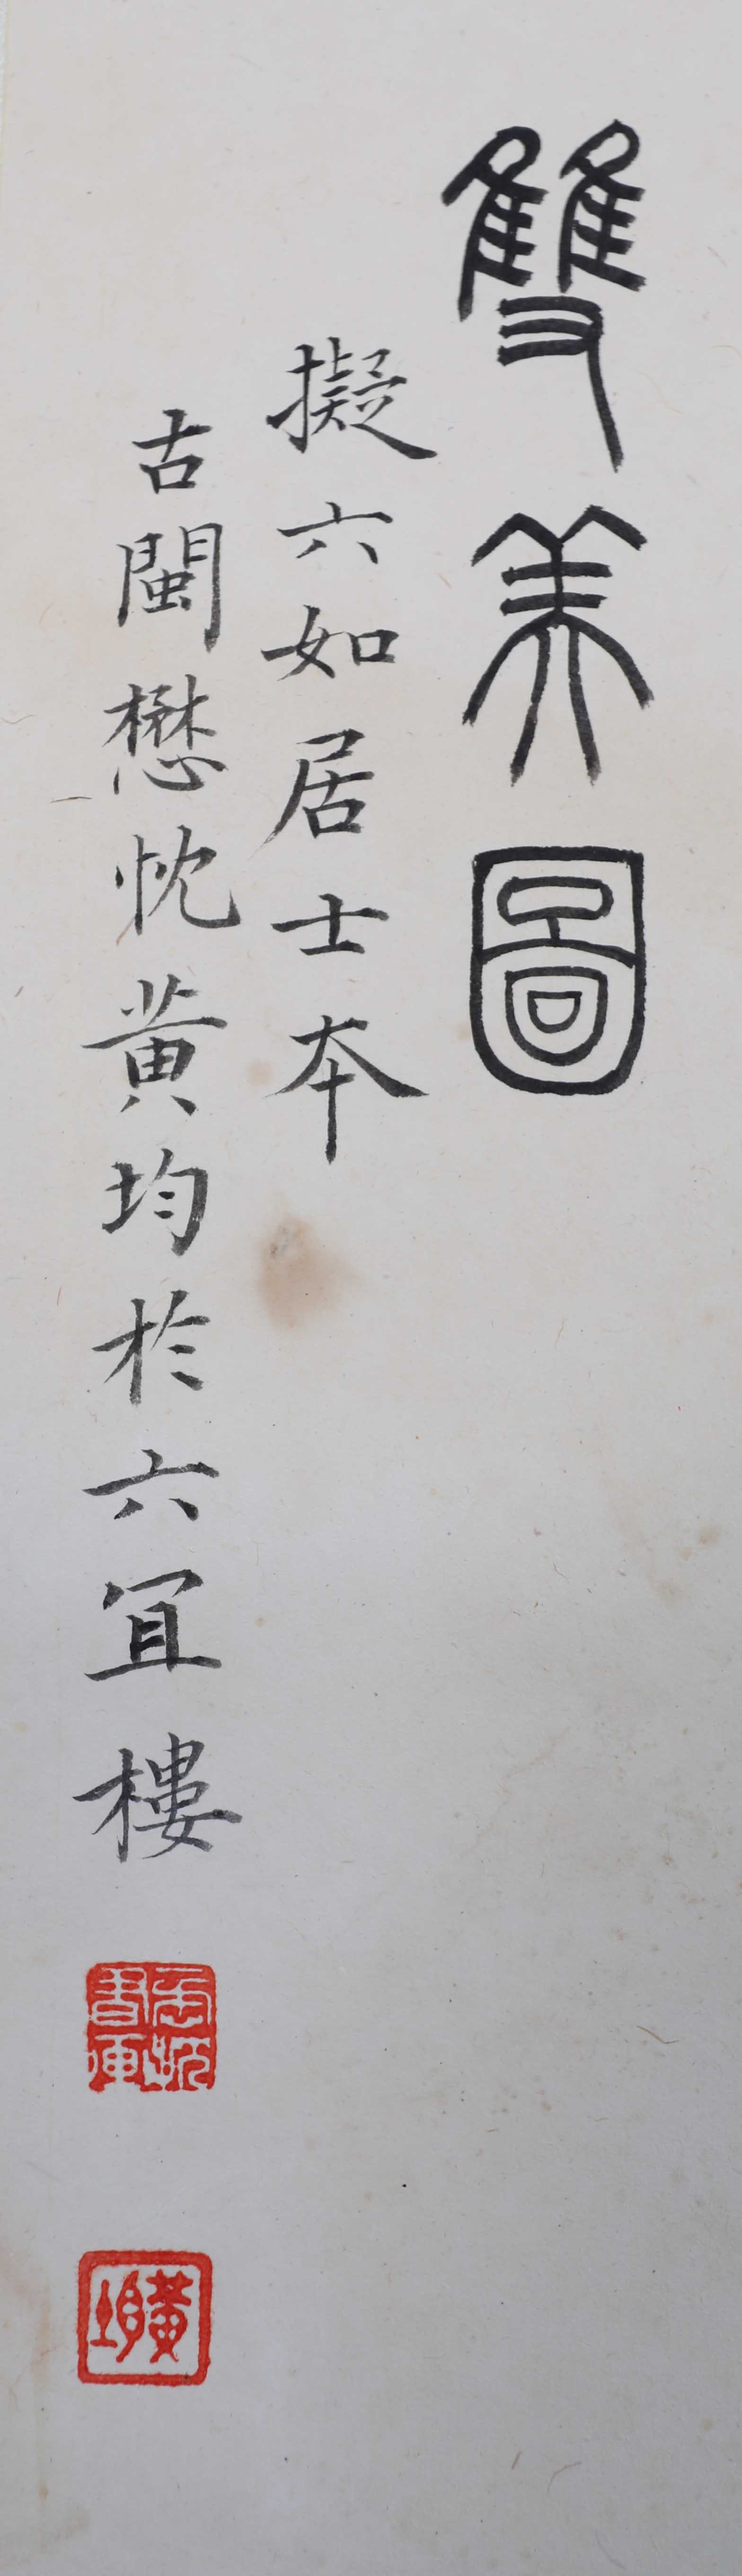 雙美圖
擬六如居士本
古閩懋忱黄均於六宜樓
黃均